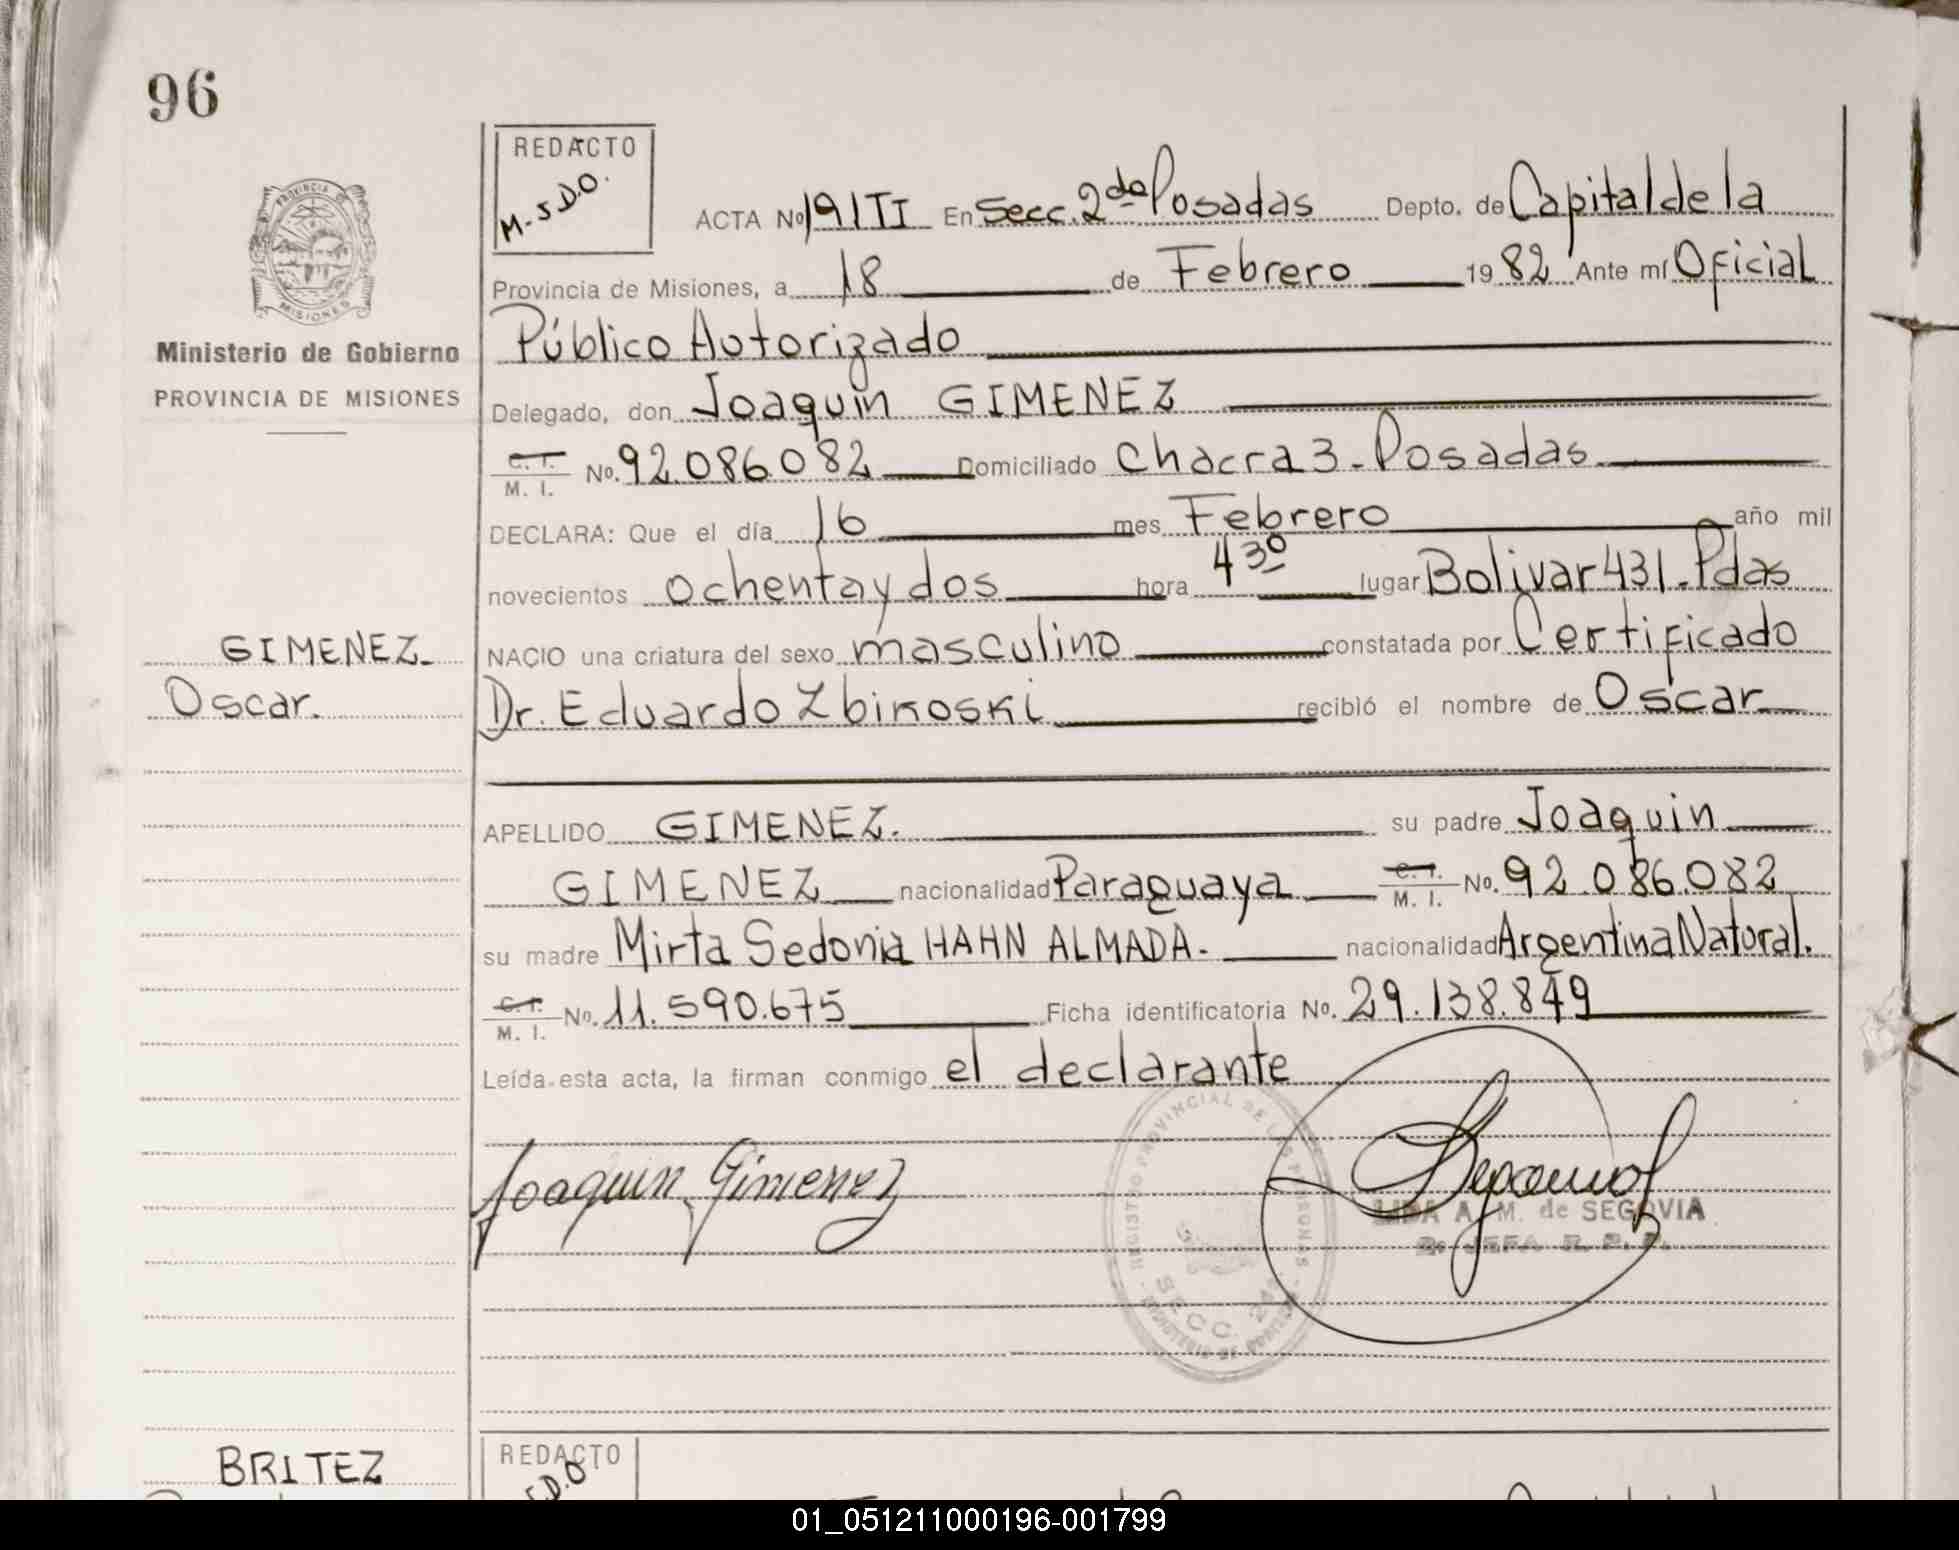 96
REDACTO
M-S D.O.
ACTA No 191 TI En Secc. 2da Posadas Depto. de Capital de la
Provincia de Misiones, a 18 de Febrero 1982 Ante mí Oficial
Público Autorizado
Ministerio de Gobierno
PROVINCIA DE MISIONES
Delegado, don Joaquin GIMENEZ
C. I. M. I. No. 92.086.082 Domiciliado Chacra 3 - Posadas
DECLARA: Que el día 16 mes Febrero año mil
novecientos ochenta y dos hora 4 30 lugar Bolivar 431 - Pdas
GIMENEZ
Oscar.
NACIO una criatura del sexo masculino constatada por Certificado
Dr. Eduardo Zbikoski recibió el nombre de Oscar
APELLIDO GIMENEZ. su padre Joaquin
GIMENEZ nacionalidad Paraguaya C. I. M. I. No. 92.086.082
su madre Mirta Sedonia HAHN ALMADA. nacionalidad Argentina Natural.
C. I. M. I. No. 11.590.675 Ficha identificatoria No. 29.138.849
Leída esta acta, la firman conmigo el declarante
Joaquin Gimenez
REGISTRO PROVINCIAL DE LAS PERSONAS
SECC. 2da
LIDA A. M. de SEGOVIA
2º JEFA R. P. P.
BRITEZ
REDACTO
S.D.O
01_051211000196-001799